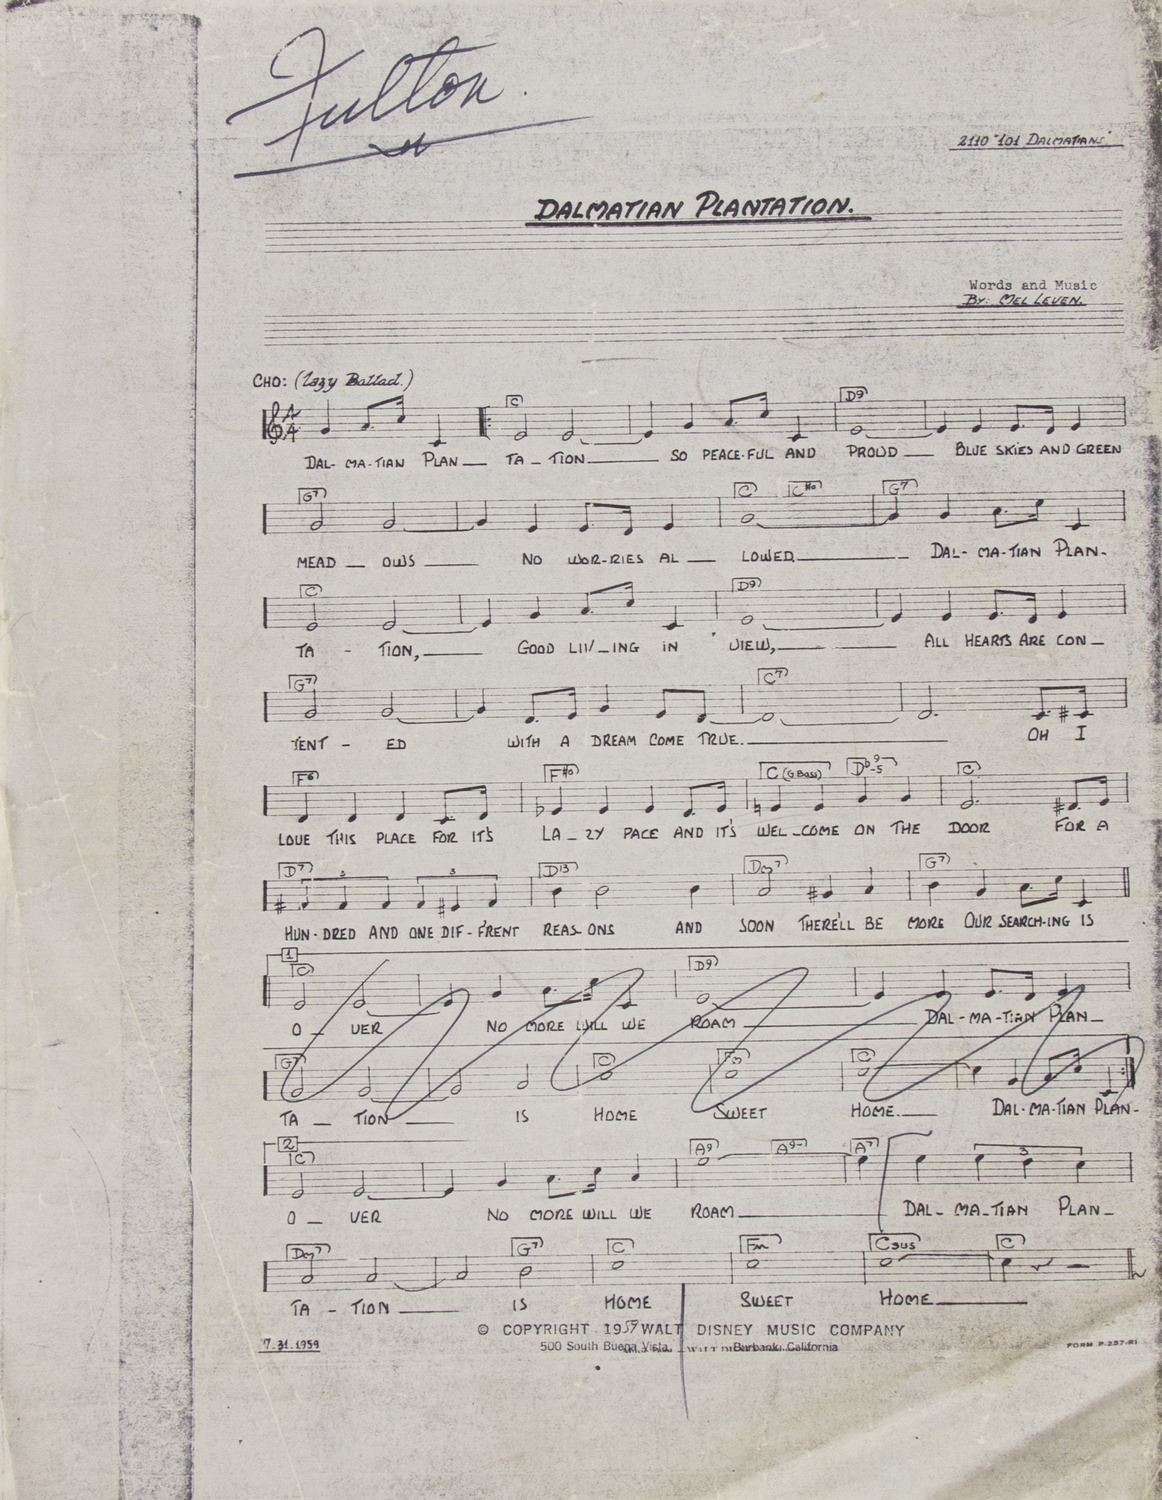 Fulton.
2110 "101 DALMATIANS"
DALMATIAN PLANTATION.
Words and Music
By: MEL LEVEN.
CHO: (Lazy Ballad.)
C D9
DAL- MA-TIAN PLAN__ TA _ TION____ SO PEACE-FUL AND PROUD __ BLUE SKIES AND GREEN
G7 C C#o G7
MEAD __ OWS ____ NO WOR-RIES AL __ LOWED____ DAL- MA-TIAN PLAN-
C D9
TA - TION,____ GOOD LIV_ING IN VIEW,____ ALL HEARTS ARE CON_
G7 C7
TENT - ED WITH A DREAM COME TRUE.____ OH I
F6 F#o C (G BASS) Db9-5 C
LOVE THIS PLACE FOR IT'S LA _ ZY PACE AND IT'S WEL_COME ON THE DOOR FOR A
D7 3 3 D13 Dm7 G7
HUN-DRED AND ONE DIF-F'RENT REAS-ONS AND SOON THERE'LL BE MORE OUR SEARCH-ING IS
1
C D9
O _ VER NO MORE WILL WE ROAM ____ DAL-MA-TIAN PLAN_
G7 C Fm C
TA _ TION ____ IS HOME SWEET HOME.____ DAL-MA-TIAN PLAN-
2
C A9 A9- A7
O _ VER NO MORE WILL WE ROAM____ DAL_ MA_TIAN PLAN_
Dm7 G7 C Fm Csus C
TA - TION ____ IS HOME SWEET HOME____
© COPYRIGHT 1959 WALT DISNEY MUSIC COMPANY
7.31.1959 500 South Buena Vista, Burbank, California FORM P-257-R1